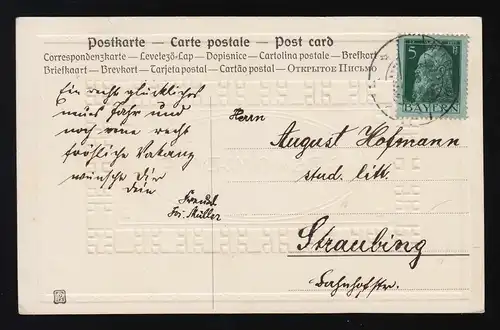 Postkarte – Carte postale – Post card
Correspondenzkarte – Levelező-Lap – Dopisnice – Cartolina postale – Brefkort
Briefkaart – Brevkort – Tarjeta postal – Cartão postal – Открытое Письмо
5
BAYERN
Ein recht glückliches
neues Jahr und
noch eine recht
fröhliche Vakanz
wünscht Dir
Dein
Freund
Müller
Herrn
August Hofmann
stud. litt.
Straubing
Bahnhofstr.